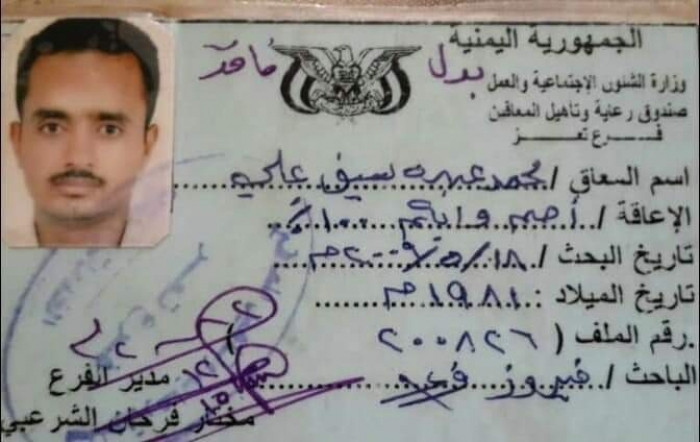 الجمهورية اليمنية
بدل فاقد
وزارة الشئون الإجتماعية والعمل
صندوق رعاية وتأهيل المعاقين
فرع تعز
اسم المعاق / محمد عبده سيف علي
الإعاقة / أصم وأبكم ١٠٠٪
تاريخ البحث / ١٨/٥/٢٠٠٩م
تاريخ الميلاد : ١٩٨١م
رقم الملف ( ٢٠٠٨٢٦ )
الباحث / فيروز
مدير الفرع
مختار فرحان الشرعبي